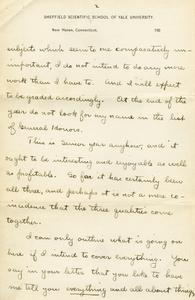 2
SHEFFIELD SCIENTIFIC SCHOOL OF YALE UNIVERSITY.
New Haven, Connecticut, 190
subjects which seem to me comparatively un-
important, I do not intend to do any more
work than I have to. And I will expect
to be graded accordingly. At the end of the
year do not look for my name in the list
of General Honors.
This is Senior year anyhow, and it
ought to be interesting and enjoyable as well
as profitable. So far it has certainly been
all three, and perhaps it is not a mere co-
incidence that the three qualities come
together.
I can only outline what is going on
here if I intend to cover everything. You
say in your letter that you like to have
me tell you everything and all about things,